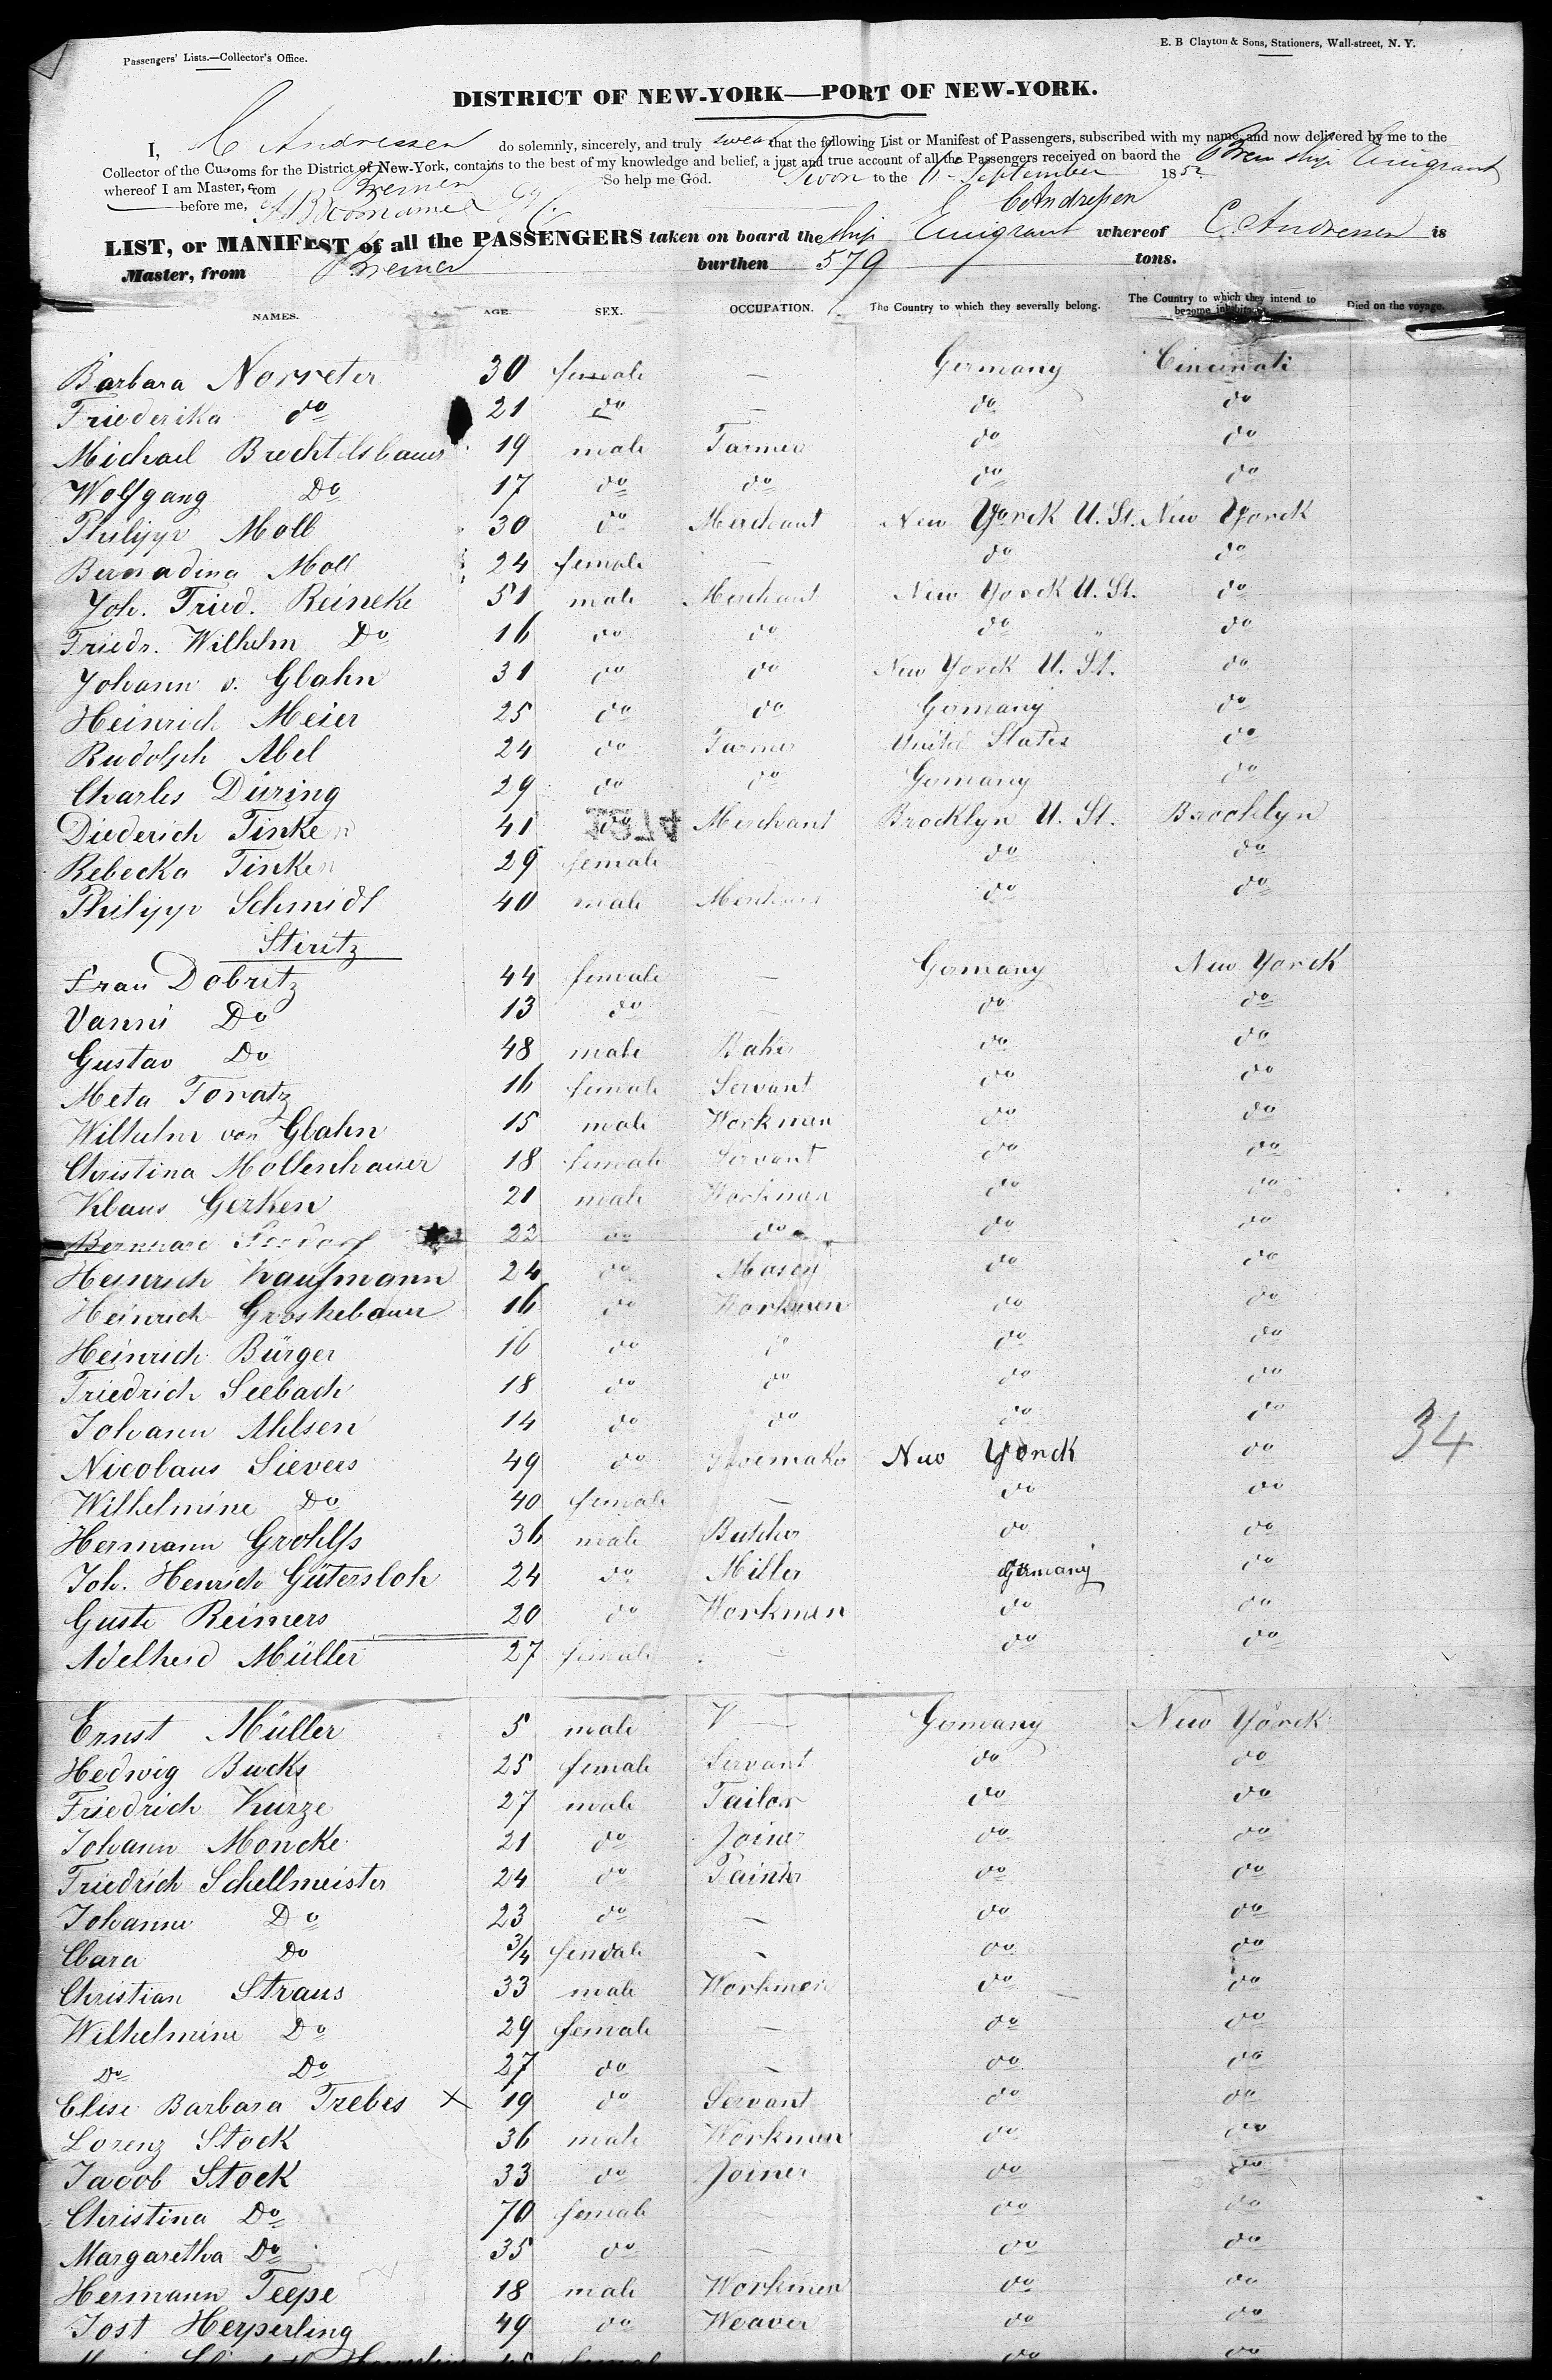 Passengers' Lists.—Collector's Office.
E. B Clayton & Sons, Stationers, Wall-street, N. Y.
DISTRICT OF NEW-YORK—PORT OF NEW-YORK.
I, C Andressen do solemnly, sincerely, and truly swear that the following List or Manifest of Passengers, subscribed with my name, and now delivered by me to the
Collector of the Customs for the District of New-York, contains to the best of my knowledge and belief, a just and true account of all the Passengers received on baord the Brem ship Emigrant
whereof I am Master, from Bremen So help me God. Sworn to the September 185
before me,
C Andressen
LIST, or MANIFEST of all the PASSENGERS taken on board the ship Emigrant whereof C. Andressen is
Master, from Bremen burthen 579 tons.
NAMES. AGE. SEX. OCCUPATION. The Country to which they severally belong. The Country to which they intend to become inhabitants. Died on the voyage.
Barbara Norreter 30 female — Germany Cincinati
Friederika do 21 do — do do
Michael Brechtelsbauer 19 male Farmer do do
Wolfgang Do 17 do do do do
Philipp Moll 30 do Merchant New Yorck U. St. New Yorck
Bernadina Moll 24 female — do do
Joh. Fried. Reineke 51 male Merchant New Yorck U. St. do
Friedr. Wilhelm Do 16 do do do " do
Johann v. Glahn 31 do do New Yorck U. St. do
Heinrich Meier 25 do do Germany do
Rudolph Abel 24 do Farmer United States do
Charles Düring 29 do do Germany do
Diederich Tinken 41 do Merchant Brocklyn U. St. Brocklyn
Rebecka Tinken 29 female — do do
Philipp Schmidt 40 male Merchant do do
Stiritz
Frau Dobritz 44 female — Germany New Yorck
Vanni Do 13 do — do do
Gustav Do 48 male Baker do do
Meta Toratz 16 female Servant do do
Wilhelm von Glahn 15 male Workman do do
Christina Mollenhauer 18 female Servant do do
Klaus Gerken 21 male Workman do do
Bernhard 22 do do do do
Heinrich Kaufmann 24 do do do
Heinrich Groskebauer 16 do Workmen do do
Heinrich Bürger 16 do do do do
Friedrich Seebach 18 do do do do
Johann Ahlsen 14 do do do do
34
Nicolaus Sievers 49 do Shoemaker New Yorck do
Wilhelmine Do 40 female — do do
Hermann Grohlfs 36 male Butcher do do
Joh. Henrich Gütersloh 24 do Miller Germany do
Guste Reimers 20 do Workmen do do
Adelheid Müller 27 female — do do
Ernst Müller 5 male — Germany New Yorck
Hedwig Bucks 25 female Servant do do
Friedrich Kurze 27 male Tailor do do
Johann Moncke 21 do Joiner do do
Friedrich Schellmeister 24 do Painter do do
Johanne Do 23 do — do do
Clara Do 3/4 female — do do
Christian Straus 33 male Workmen do do
Wilhelmine Do 29 female — do do
Do Do 27 do — do do
Elise Barbara Trebes X 19 do Servant do do
Lorenz Stock 36 male Workman do do
Jacob Stock 33 do Joiner do do
Christina Do 70 female do do
Margaretha Do 35 do — do do
Hermann Teepe 18 male Workmen do do
Jost Heyperling 49 do Weaver do do